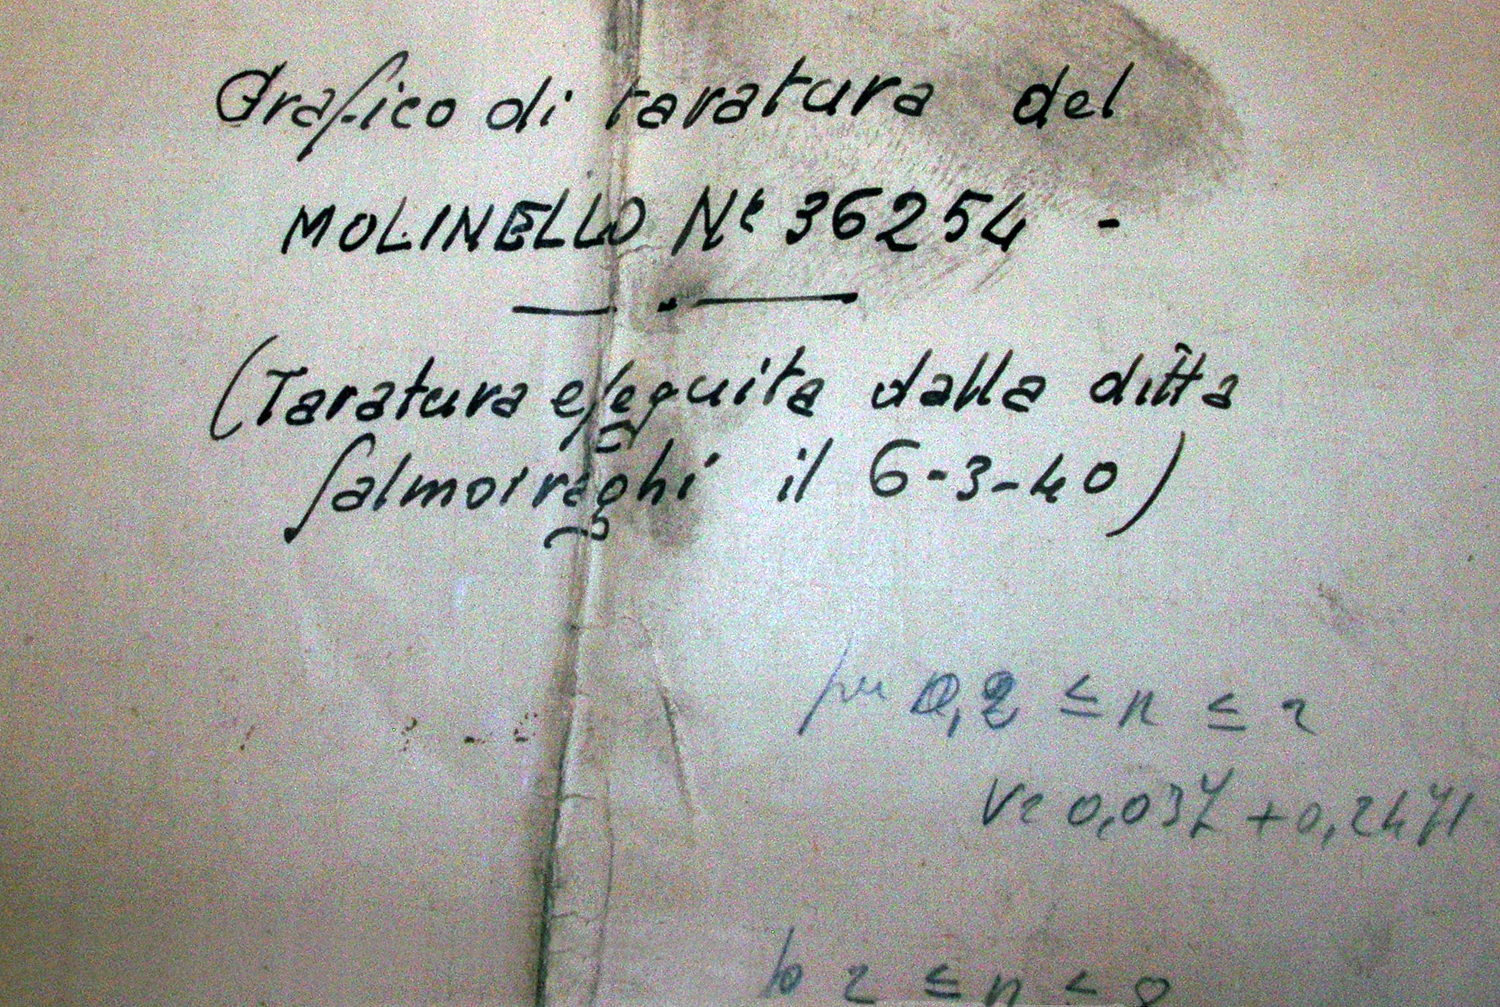 Grafico di taratura del
MOLINELLO Nº 36254 -
(Taratura eseguita dalla ditta
Salmoiraghi il 6-3-40)
per 0,2 ≤ n ≤ 2
V= 0,037 + 0,247
2 ≤ n ≤